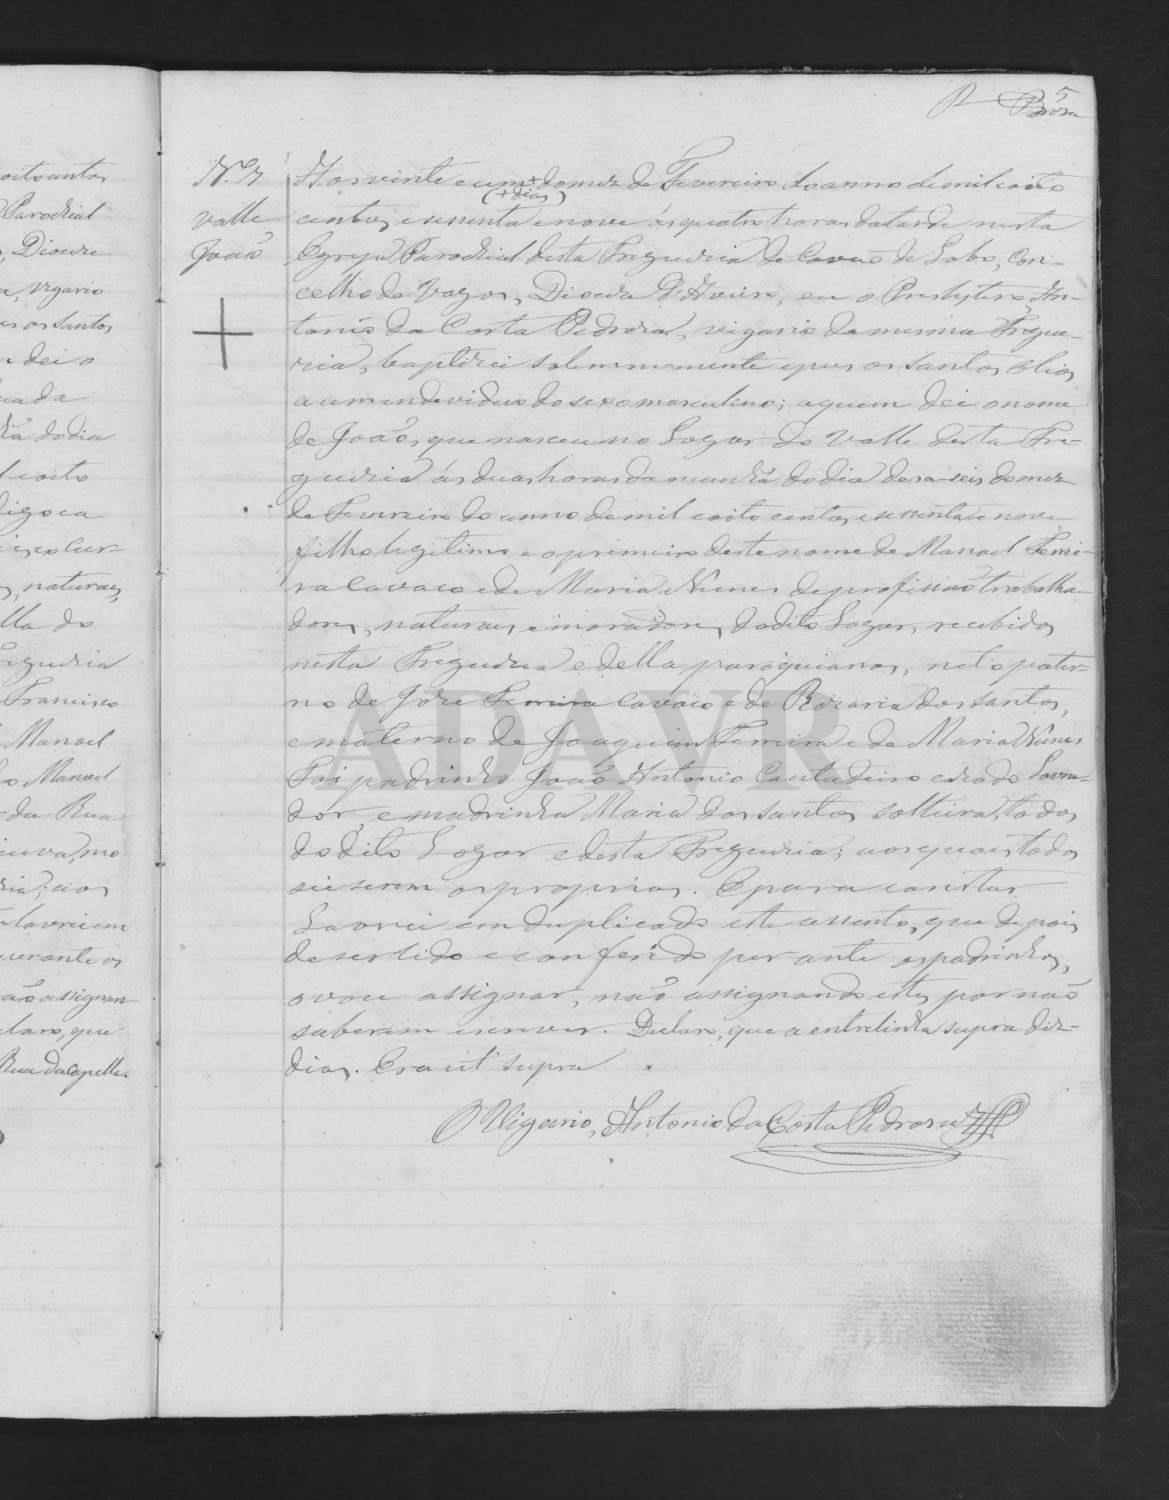 5
P Pedrosa
N.º 7
Valle
João
Aos vinte e um + do mez de Fevereiro do anno de mil e oito
(+ dias)
centos e sessenta e nove ás quatro horas da tarde nesta
Egreja Parochial desta Freguezia de Covão do Lobo, Con-
celho de Vagos, Diocese d'Aveiro, eu o Presbytero An-
tonio da Costa Pedrosa, vigario da mesma Fregue-
zia, baptizei solemnemente e puz os santos Olios
a um individuo do sexo masculino; a quem dei o nome
de João, que nasceu no Logar do Valle desta Fre-
guezia ás duas horas da manhã do dia deza-seis do mez
de Fevereiro do anno de mil e oito centos e sessenta e nove
filho legitimo e o primeiro deste nome de Manoel Ferrei-
ra Cavaco e de Maria Nunes de profissão trabalha-
dores, naturaes e moradores do dito Logar, recebidos
nesta Freguezia e della paroquianos, neto pater-
no de José Ferreira Cavaco e de Rozaria dos Santos,
e materno de Joaquim Ferreira e de Maria Nunes
Foi padrinho João Antonio Cantadeiro cazado Lavra-
dor, e madrinha Maria dos Santos solteira, todos
do dito Logar e desta Freguezia; aos quaes todos
sei serem os proprios. E para constar
Lavrei em duplicado este assento, que depois
de ser lido e conferido perante os padrinhos,
o vou assignar, não assignando estes por não
saberem escrever. Declaro, que a entrelinha supra diz-
dias. Era ut supra.
O Vigario, Antonio da Costa Pedrosa
oito centos
Parochial
Diocese
vigario
os Santos
dei o
do dia
e oito
naturaes
lla do
Freguezia
Francisco
Manoel
Manoel
da Rua
viuva, mo
zia; aos
lavrei em
perante os
não assignan
claro, que
Rua da Capella.
ADAVR